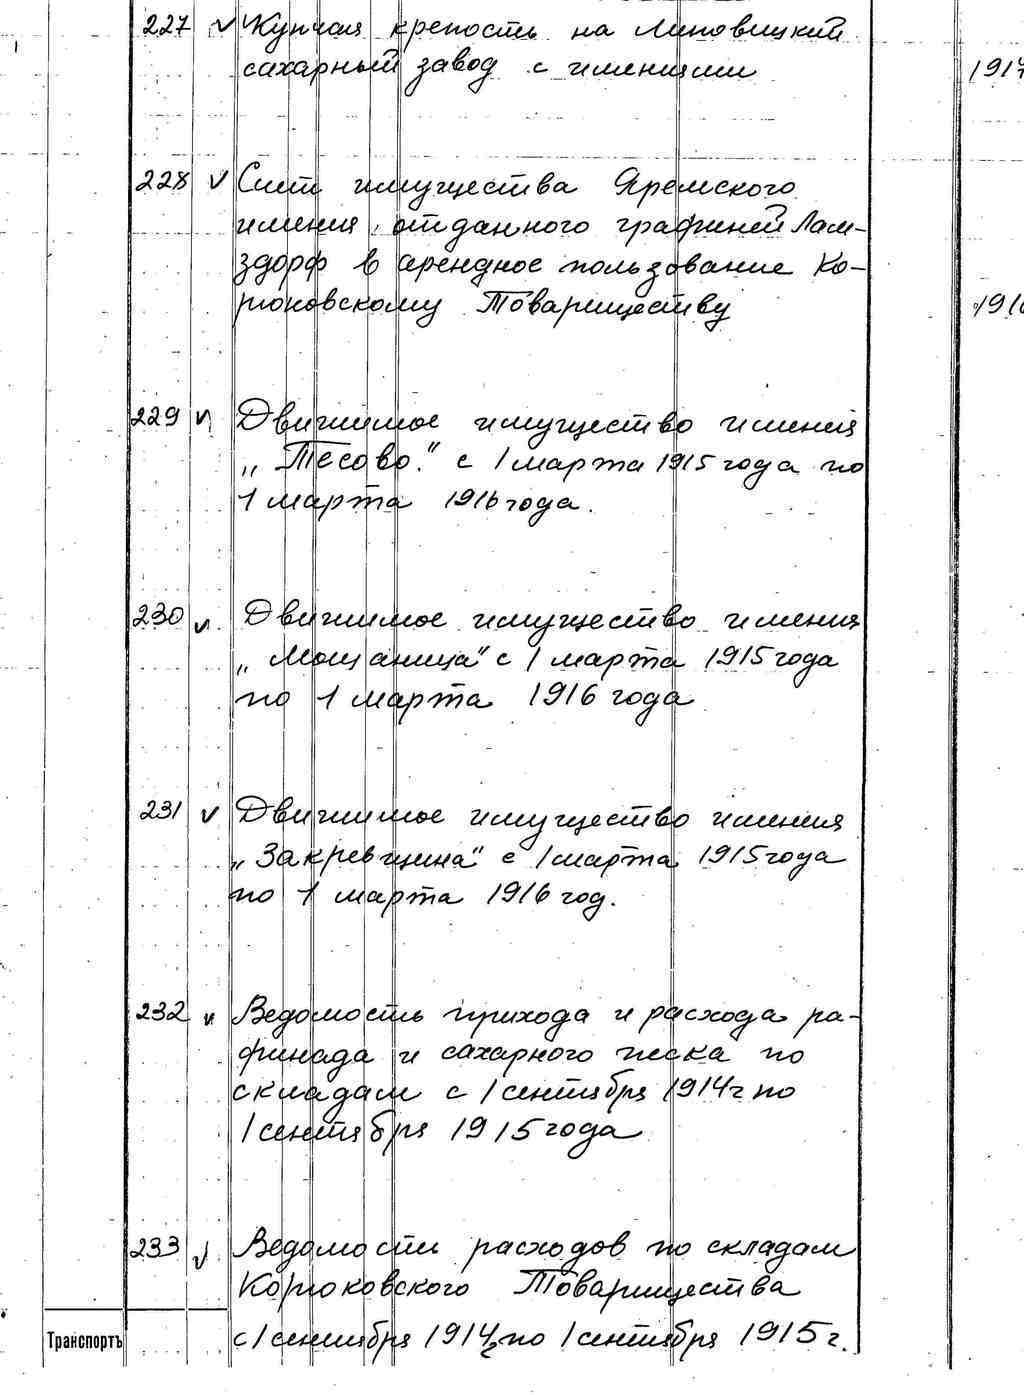 227 ✓ Купчая крепость на Линовицкий
сахарный завод с имениями 1917
228 ✓ Счет имущества Яремского
имения, отданного графиней Лам-
здорф в арендное пользование Ко-
рюковскому Товариществу 1916
229 ✓ Движимое имущество имения
„Тесово." с 1 марта 1915 года по
1 марта 1916 года.
230 ✓ Движимое имущество имения
„Мощаница" с 1 марта 1915 года
по 1 марта 1916 года
231 ✓ Движимое имущество имения
„Закревщина" с 1 марта 1915 года
по 1 марта 1916 год.
232 ✓ Ведомость прихода и расхода ра-
финада и сахарного песка по
складам с 1 сентября 1914 г по
1 сентября 1915 года
233 ✓ Ведомости расходов по складам
Корюковского Товарищества
Транспортъ с 1 сентября 1914 г по 1 сентября 1915 г.